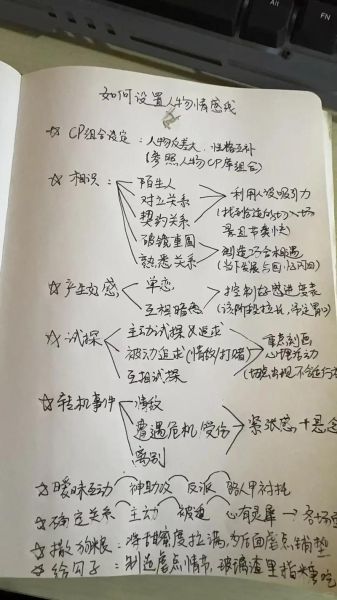 Alt
FN
如何设置人物情感线
☆ CP组合设定：人物反差大，性格互补
(参照人物CP库组合)
☆ 相识
陌生人
对立关系
契约关系
破镜重圆
熟悉关系
利用人设吸引力
(找到合适的切入场
景且节奏快)
制造巧合相遇
(当下发展与回忆闪回)
☆产生好感
单恋
互相暗恋
控制好感进度表
☆试探
主动试探及追求
被动追求(情敌/打赌)
互相试探
重点刻画
心理活动
☆转机事件
情敌
遭遇危机/受伤
离别
紧张感+悬念
☆暧昧互动 神助攻 反派 路人甲衬托
☆确定关系 主动 被迫 心有灵犀→各场
☆撒狗粮：将甜蜜度拉满，为后面虐点铺垫
☆给勾子：制造虐点情节，玻璃渣里指望吃